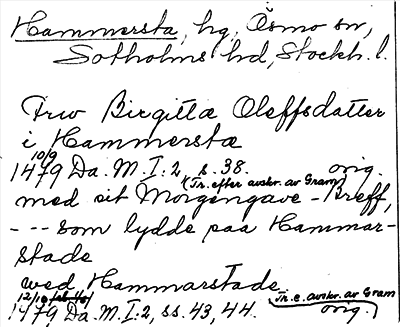 Hammersta, hg, Ösmo sn,
Sotholms hd, Stockh. l.
Frw Birgittæ Oleffsdatter
i Hammerstæ
10/9
1479 Da. M. I:2 s. 38. orig.
(Tr. efter avskr. av Gram)
med sit Morgengave-Breff,
--- som lydde paa Hammar-
stade
wed Hammarstade
12/10 (Tr. e. avskr. av Gram
1479, Da. M. I:2, ss. 43, 44. orig.)